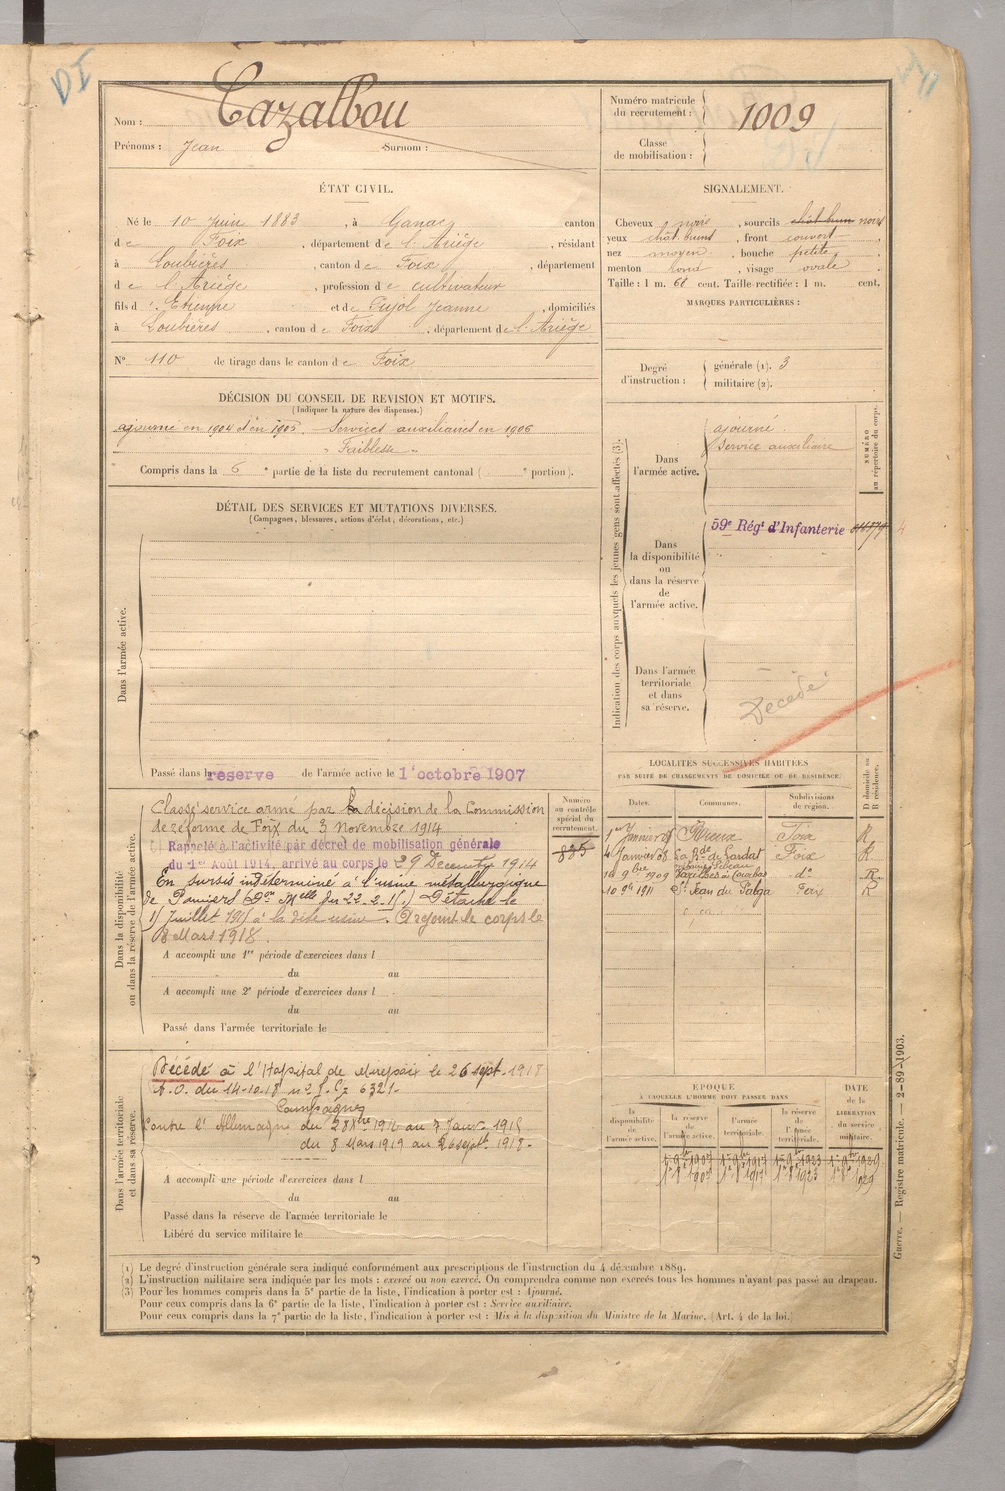 DI
Nom : Cazalbou
Prénoms : Jean Surnom :
Numéro matricule du recrutement : 1009
Classe de mobilisation :
ÉTAT CIVIL.
Né le 10 Juin 1883, à Ganac, canton
de Foix, département de l'Ariège, résidant
à Loubières, canton de Foix, département
de l'Ariège, profession de cultivateur
fils d' Etienne et de Pujol Jeanne, domiciliés
à Loubières, canton de Foix, département de l'Ariège
N° 110 de tirage dans le canton de Foix
SIGNALEMENT.
Cheveux noirs, sourcils chât. bruns noirs
yeux chât. bruns, front couvert,
nez moyen, bouche petite,
menton rond, visage ovale.
Taille : 1 m. 61 cent. Taille rectifiée : 1 m. cent.
MARQUES PARTICULIÈRES :
Degré d'instruction : générale (1). 3
militaire (2).
DÉCISION DU CONSEIL DE REVISION ET MOTIFS.
(Indiquer la nature des dispenses.)
ajourné en 1904 et en 1905. Services auxiliaires en 1906
" Faiblesse "
Compris dans la 6e partie de la liste du recrutement cantonal ( e portion).
DÉTAIL DES SERVICES ET MUTATIONS DIVERSES.
(Campagnes, blessures, actions d'éclat, décorations, etc.)
Dans l'armée active.
Passé dans la réserve de l'armée active le 1er octobre 1907
Indication des corps auxquels les jeunes gens sont affectés (3).
NUMÉRO au répertoire du corps.
Dans l'armée active.
ajourné.
Service auxiliaire
59e Régt d'Infanterie
4
Dans la disponibilité ou dans la réserve de l'armée active.
Dans l'armée territoriale et dans sa réserve.
Décédé
Dans la disponibilité ou dans la réserve de l'armée active.
Classé service armé par la décision de la Commission
de réforme de Foix du 3 Novembre 1914
Rappelé à l'activité par décret de mobilisation générale
du 1er Août 1914, arrivé au corps le 29 Décembre 1914
En sursis indéterminé à l'usine métallurgique
de Pamiers Détaché le
11 Juillet 1915 à la dite usine. Rejoint le corps le
8 Mars 1918.
A accompli une 1re période d'exercices dans l
du au
A accompli une 2e période d'exercices dans l
du au
Passé dans l'armée territoriale le
Numéro au contrôle spécial du recrutement.
885
LOCALITÉS SUCCESSIVES HABITÉES
PAR SUITE DE CHANGEMENTS DE DOMICILE OU DE RÉSIDENCE.
Dates. Communes. Subdivisions de région. D domicile ou R résidence.
Foix R
Janvier 08 Foix R
1909 do R
10 9bre 1911 St Jean du Falga Foix R
Dans l'armée territoriale et dans sa réserve.
Décédé à l'Hopital de Mirepoix le 26 sept. 1918
A.O. du 14-10-18
Campagnes
Contre l'Allemagne
du 8 Mars
A accompli une période d'exercices dans l
du au
Passé dans la réserve de l'armée territoriale le
Libéré du service militaire le
ÉPOQUE
À LAQUELLE L'HOMME DOIT PASSER DANS
la disponibilité de l'armée active. la réserve de l'armée active. l'armée territoriale. la réserve de l'armée territoriale.
DATE de la LIBÉRATION du service militaire.
Guerre. — Registre matricule. — 2-89-1903.
(1) Le degré d'instruction générale sera indiqué conformément aux prescriptions de l'instruction du 4 décembre 1889.
(2) L'instruction militaire sera indiquée par les mots : exercé ou non exercé. On comprendra comme non exercés tous les hommes n'ayant pas passé au drapeau.
(3) Pour les hommes compris dans la 5e partie de la liste, l'indication à porter est : Ajourné.
Pour ceux compris dans la 6e partie de la liste, l'indication à porter est : Service auxiliaire.
Pour ceux compris dans la 7e partie de la liste, l'indication à porter est : Mis à la disposition du Ministre de la Marine. (Art. 4 de la loi.)